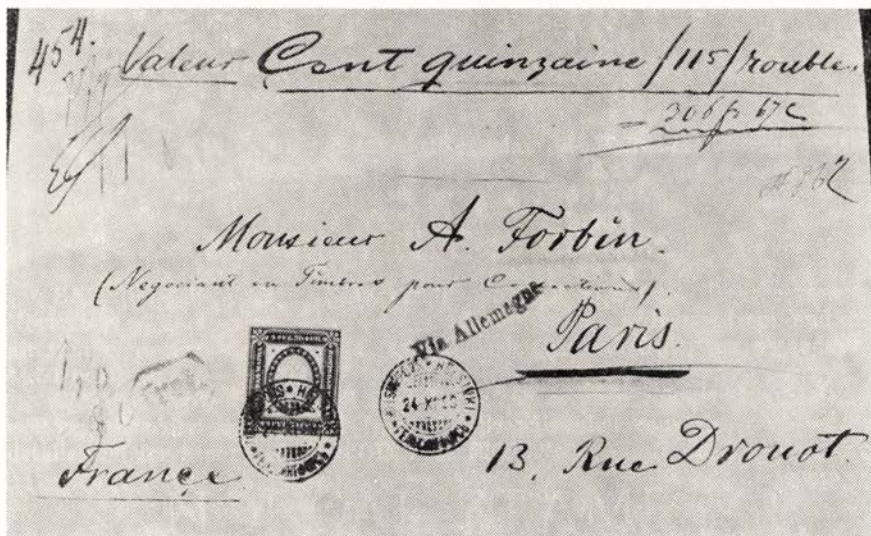 454.
Valeur Cent quinzaine /115/ roubles
= 306 fr 67 c
Monsieur A. Forbin.
(Negociant en Timbres pour Collections).
Via Allemagne
Paris.
HELSINKI
24 XI
France
13, Rue Drouot.